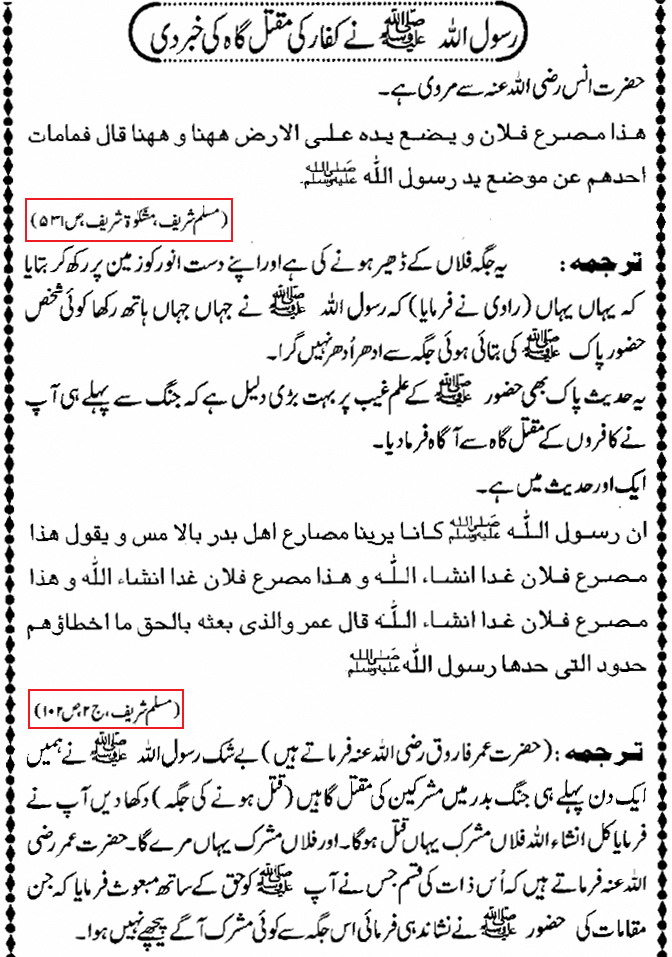 رسول اللہ ﷺ نے کفار کی مقتل گاہ کی خبر دی
حضرت انس رضی اللہ عنہ سے مروی ہے۔
هذا مصرع فلان و يضع يده على الارض ههنا و ههنا قال فمامات
احدهم عن موضع يد رسول الله ﷺ
(مسلم شریف، مشکوٰۃ شریف، ص ۵۳۱)
ترجمہ: یہ جگہ فلاں کے ڈھیر ہونے کی ہے اور اپنے دست انور کو زمین پر رکھ کر بتایا
کہ یہاں یہاں (راوی نے فرمایا) کہ رسول اللہ ﷺ نے جہاں جہاں ہاتھ رکھا کوئی شخص
حضور پاک ﷺ کی بتائی ہوئی جگہ سے ادھر اُدھر نہیں گرا۔
یہ حدیث پاک بھی حضور ﷺ کے علم غیب پر بہت بڑی دلیل ہے کہ جنگ سے پہلے ہی آپ
نے کافروں کے مقتل گاہ سے آگاہ فرما دیا۔
ایک اور حدیث میں ہے۔
ان رسول الله ﷺ كانا يرينا مصارع اهل بدر بالا مس و يقول هذا
مصرع فلان غدا انشاء الله و هذا مصرع فلان غدا انشاء الله و هذا
مصرع فلان غدا انشاء الله قال عمر والذى بعثه بالحق ما اخطاؤهم
حدود التى حدها رسول الله ﷺ
(مسلم شریف، ج ۲، ص ۱۰۲)
ترجمہ: (حضرت عمر فاروق رضی اللہ عنہ فرماتے ہیں) بے شک رسول اللہ ﷺ نے ہمیں
ایک دن پہلے ہی جنگ بدر میں مشرکین کی مقتل گاہیں (قتل ہونے کی جگہ) دکھا دیں آپ نے
فرمایا کل انشاء اللہ فلاں مشرک یہاں قتل ہوگا۔ اور فلاں مشرک یہاں مرے گا۔ حضرت عمر رضی
اللہ عنہ فرماتے ہیں کہ اُس ذات کی قسم جس نے آپ ﷺ کو حق کے ساتھ مبعوث فرمایا کہ جن
مقامات کی حضور ﷺ نے نشاندہی فرمائی اس جگہ سے کوئی مشرک آگے پیچھے نہیں ہوا۔